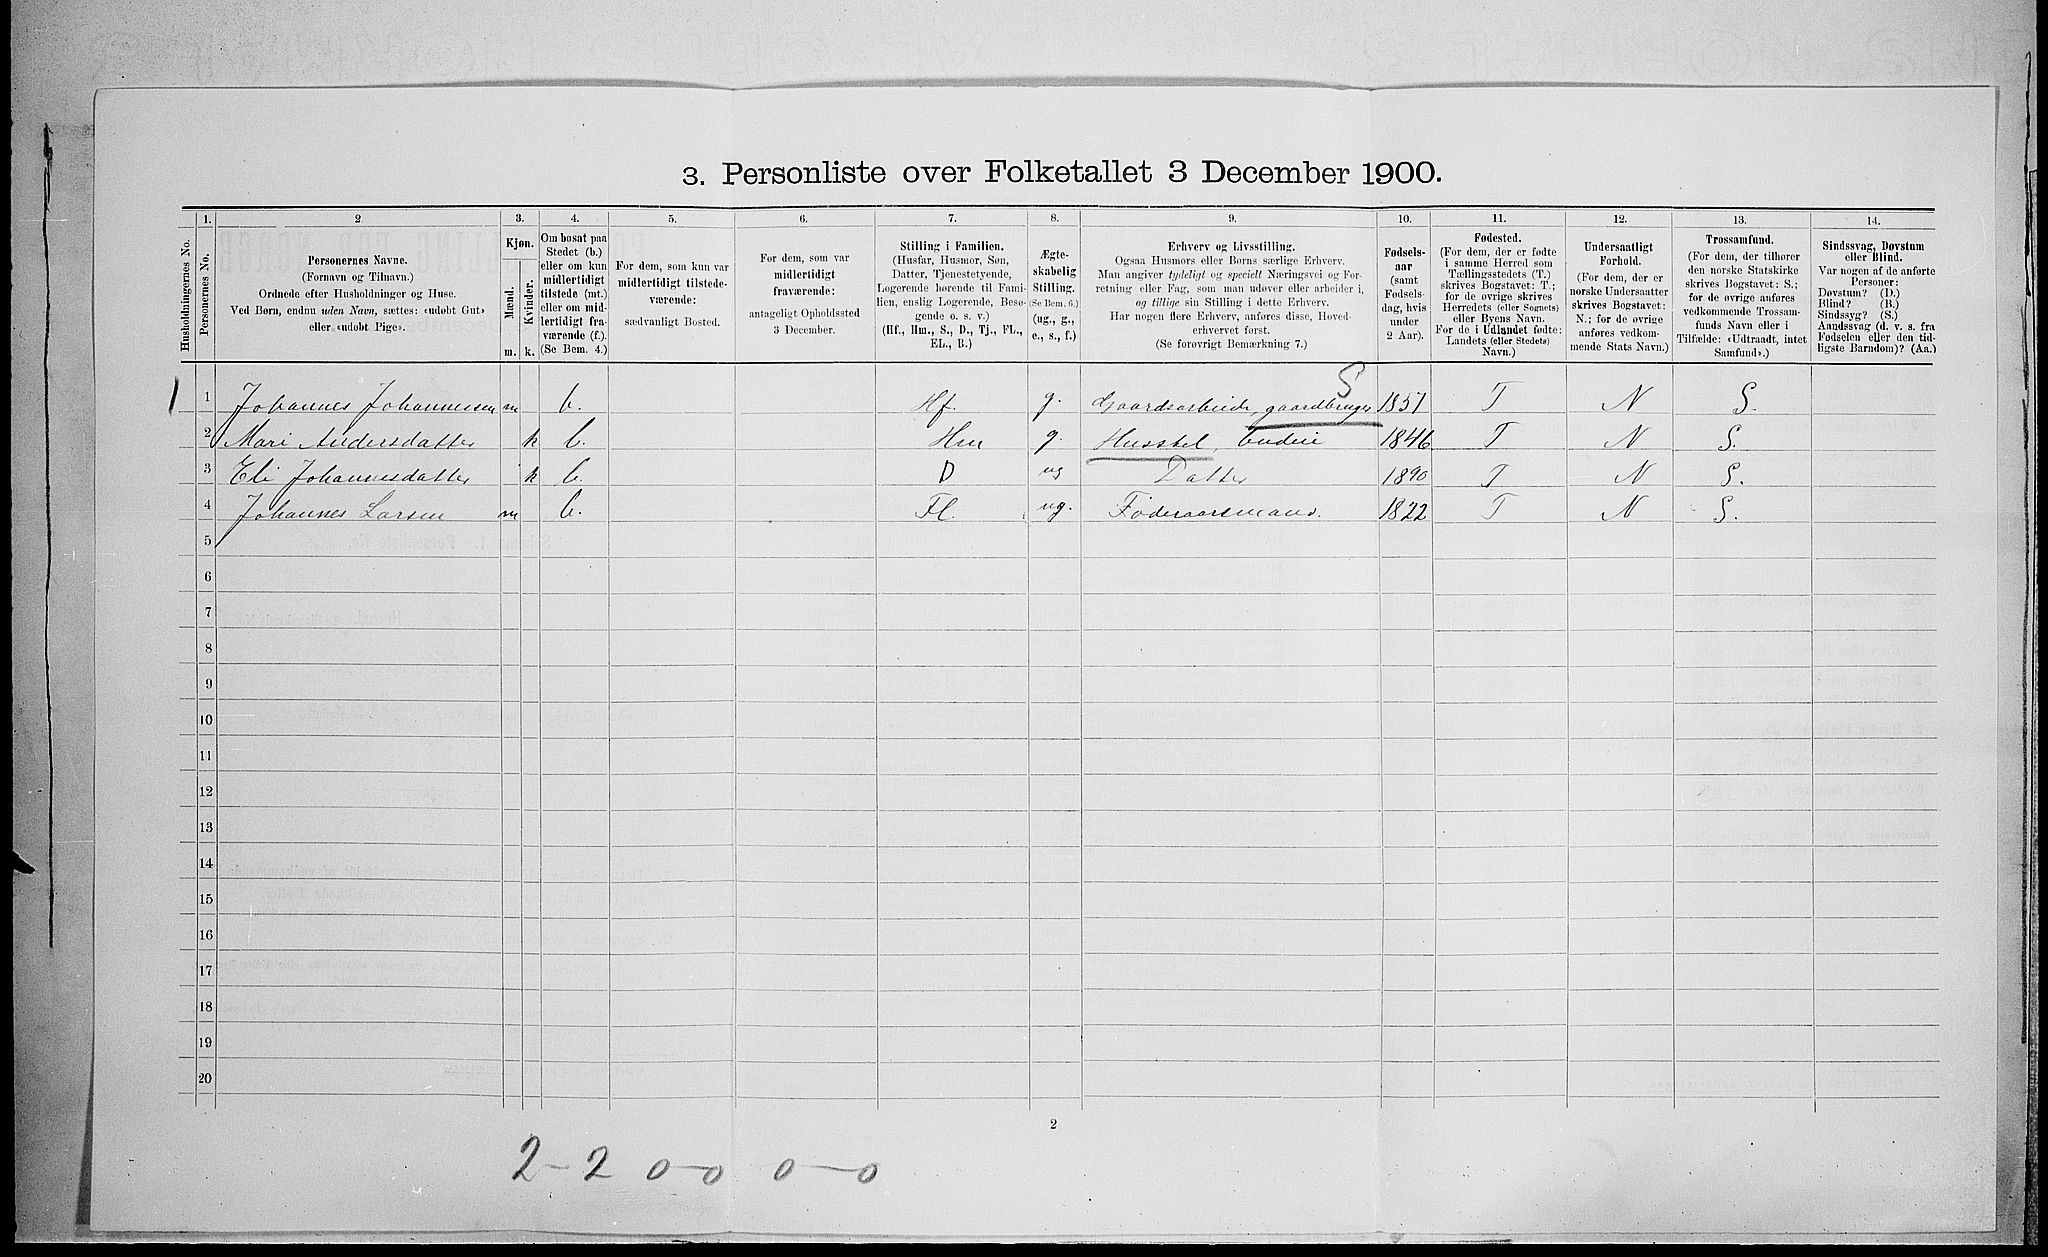 3. Personliste over Folketallet 3 December 1900.
1. 2. 3. 4. 5. 6. 7. 8. 9. 10. 11. 12. 13. 14.
Husholdningernes No.
Personernes No.
Personernes Navne.
(Fornavn og Tilnavn.)
Ordnede efter Husholdninger og Huse.
Ved Børn, endnu uden Navn, sættes: «udøbt Gut»
eller «udøbt Pige».
Kjøn.
Mænd.
Kvinder.
m. k.
Om bosat paa
Stedet (b.)
eller om kun
midlertidigt
tilstede (mt.)
eller om mid-
lertidigt fra-
værende (f.).
(Se Bem. 4.)
For dem, som kun var
midlertidigt tilstede-
værende:
sædvanligt Bosted.
For dem, som var
midlertidigt
fraværende:
antageligt Opholdssted
3 December.
Stilling i Familien.
(Husfar, Husmor, Søn,
Datter, Tjenestetyende,
Logerende hørende til Fami-
lien, enslig Logerende, Besø-
gende o. s. v.)
(Hf., Hm., S., D., Tj., FL.,
EL., B.)
Ægte-
skabelig
Stilling.
(Se Bem. 6.)
(ug., g.,
e., s., f.)
Erhverv og Livsstilling.
Ogsaa Husmors eller Børns særlige Erhverv.
Man angiver tydeligt og specielt Næringsvei og For-
retning eller Fag, som man udøver eller arbeider i,
og tillige sin Stilling i dette Erhverv.
Har nogen flere Erhverv, anføres disse, Hoved-
erhvervet først.
(Se forøvrigt Bemærkning 7.)
Fødsels-
aar
(samt
Fødsels-
dag, hvis
under
2 Aar).
Fødested.
(For dem, der er fødte
i samme Herred som
Tællingsstedets (T.)
skrives Bogstavet: T.;
for de øvrige skrives
Herredets (eller Sognets)
eller Byens Navn.
For de i Udlandet fødte:
Landets (eller Stedets)
Navn.)
Undersaatligt
Forhold.
(For dem, der er
norske Undersaatter
skrives Bogstavet:
N.; for de øvrige
anføres vedkom-
mende Stats Navn.)
Trossamfund.
(For dem, der tilhører
den norske Statskirke
skrives Bogstavet: S.;
for de øvrige anføres
vedkommende Trossam-
funds Navn eller i
Tilfælde: «Udtraadt, intet
Samfund».)
Sindssvag, Døvstum
eller Blind.
Var nogen af de anførte
Personer:
Døvstum? (D.)
Blind? (B.)
Sindssyg? (S.)
Aandssvag (d. v. s. fra
Fødselen eller den tid-
ligste Barndom)? (Aa.)
S
1 1 Johannes Johannessen m b. Hf. g. Gaardsarbeide, gaardbruger 1851 T N S.
2 Mari Andersdatter k b. Hm g. Husstel, 1846 T N S.
3 Eli Johannesdatter k b. D ug Datter 1890 T N S.
4 Johannes Larsen m b. Fl. ug. Føderaadsmand. 1822 T N S.
5
6
7
8
9
10
11
12
13
14
15
16
17
18
19
20
2
2-2 0-0 0-0